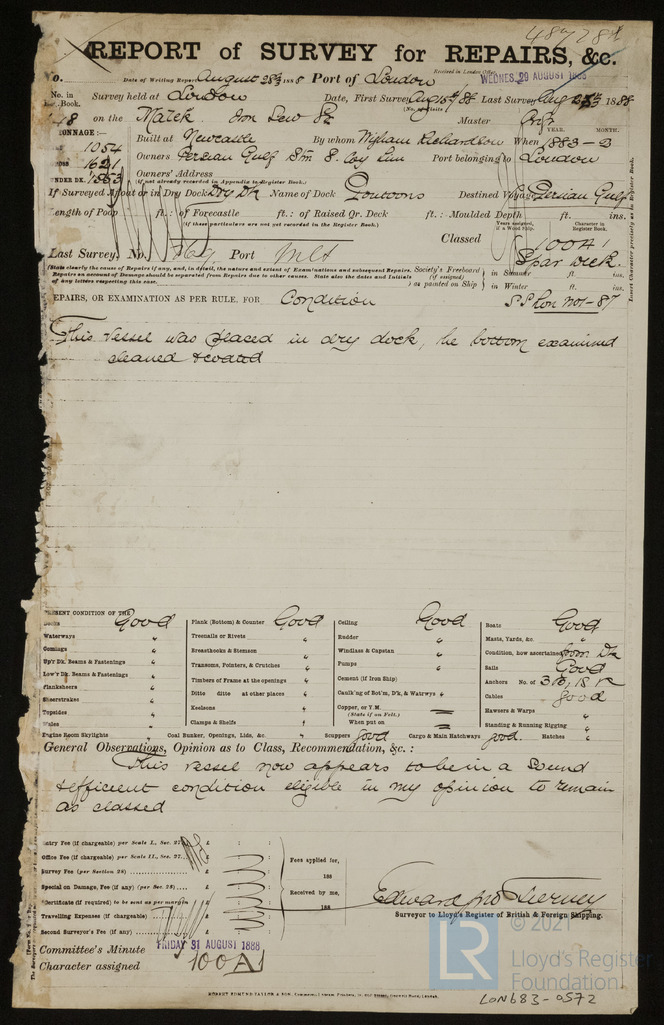 48778
REPORT of SURVEY for REPAIRS, &c.
Date of Writing Report August 28th 1888 Port of London
Received in London Office
WEDNES. 29 AUGUST 1888
No. in
Book.
Survey held at London Date, First Survey Aug 15th/88 Last Survey Aug 1888
(No. of Visits
48 on the Iron Screw Str Master
TONNAGE:—
YEAR. MONTH.
1054
Built at Newcastle By whom Wigham Richardson When 1883–2
1621
Owners Persian Gulf Stm S. Coy Lim Port belonging to London
UNDER DK. 1553
Owners' Address
(if not already recorded in Appendix to Register Book.)
If Surveyed Afloat or in Dry Dock Dry Dk Name of Dock Pontoons Destined Voyage Persian Gulf
Length of Poop ft.: of Forecastle ft.: of Raised Qr. Deck ft.: Moulded Depth ft. ins.
(if these particulars are not yet recorded in the Register Book.)
Years assigned, if a Wood Ship.
Character in Register Book.
Insert Character precisely as in Register Book.
Classed 100A1
Last Survey, No. Port Spar Deck.
(State clearly the cause of Repairs if any, and, in detail, the nature and extent of Examinations and subsequent Repairs.
Repairs on account of Damage should be separated from Repairs due to other causes. State also the dates and Initials
of any letters respecting this case.
Society's Freeboard (if assigned) as painted on Ship
in Summer ft. ins.
in Winter ft. ins.
REPAIRS, OR EXAMINATION AS PER RULE, FOR Condition
SS Lon Nov–87
This vessel was placed in dry dock, the bottom examined
cleaned & coated
PRESENT CONDITION OF THE
Decks Good
Waterways "
Comings "
Up'r D'k. Beams & Fastenings "
Low'r D'k. Beams & Fastenings "
Planksheers "
Sheerstrakes "
Topsides "
Wales "
Engine Room Skylights "
Plank (Bottom) & Counter Good
Treenails or Rivets "
Breasthooks & Stemson "
Transoms, Pointers, & Crutches "
Timbers of Frame at the openings "
Ditto ditto at other places "
Keelsons "
Clamps & Shelfs "
Coal Bunker, Openings, Lids, &c. "
Ceiling Good
Rudder "
Windlass & Capstan "
Pumps "
Cement (if Iron Ship) "
Caulk'ng of Bot'm, D'k, & Watrwys "
Copper, or Y.M.
(State if on Felt.)
When put on
Scuppers good Cargo & Main Hatchways good.
Boats Good
Masts, Yards, &c. "
Condition, how ascertained from Dk
Sails Good
Anchors No. of 3B, 1S, 1K
Cables good
Hawsers & Warps "
Standing & Running Rigging "
Hatches "
General Observations, Opinion as to Class, Recommendation, &c. :
This vessel now appears to be in a sound
& efficient condition eligible in my opinion to remain
as classed
Entry Fee (if chargeable) per Scale I., Sec. 27 £ : :
Office Fee (if chargeable) per Scale II., Sec. 27 £
Survey Fee (per Section 28) £
Special on Damage, Fee (if any) (per Sec. 28) £
Certificate (if required) to be sent as per margin
Travelling Expenses (if chargeable) £
Second Surveyor's Fee (if any) £
Fees applied for,
188
Received by me,
188
Edward Jno Tierney
Surveyor to Lloyd's Register of British & Foreign Shipping.
Committee's Minute FRIDAY 31 AUGUST 1888
Character assigned 100A1
LR
© 2021
Lloyd's Register
Foundation
LON683-0572